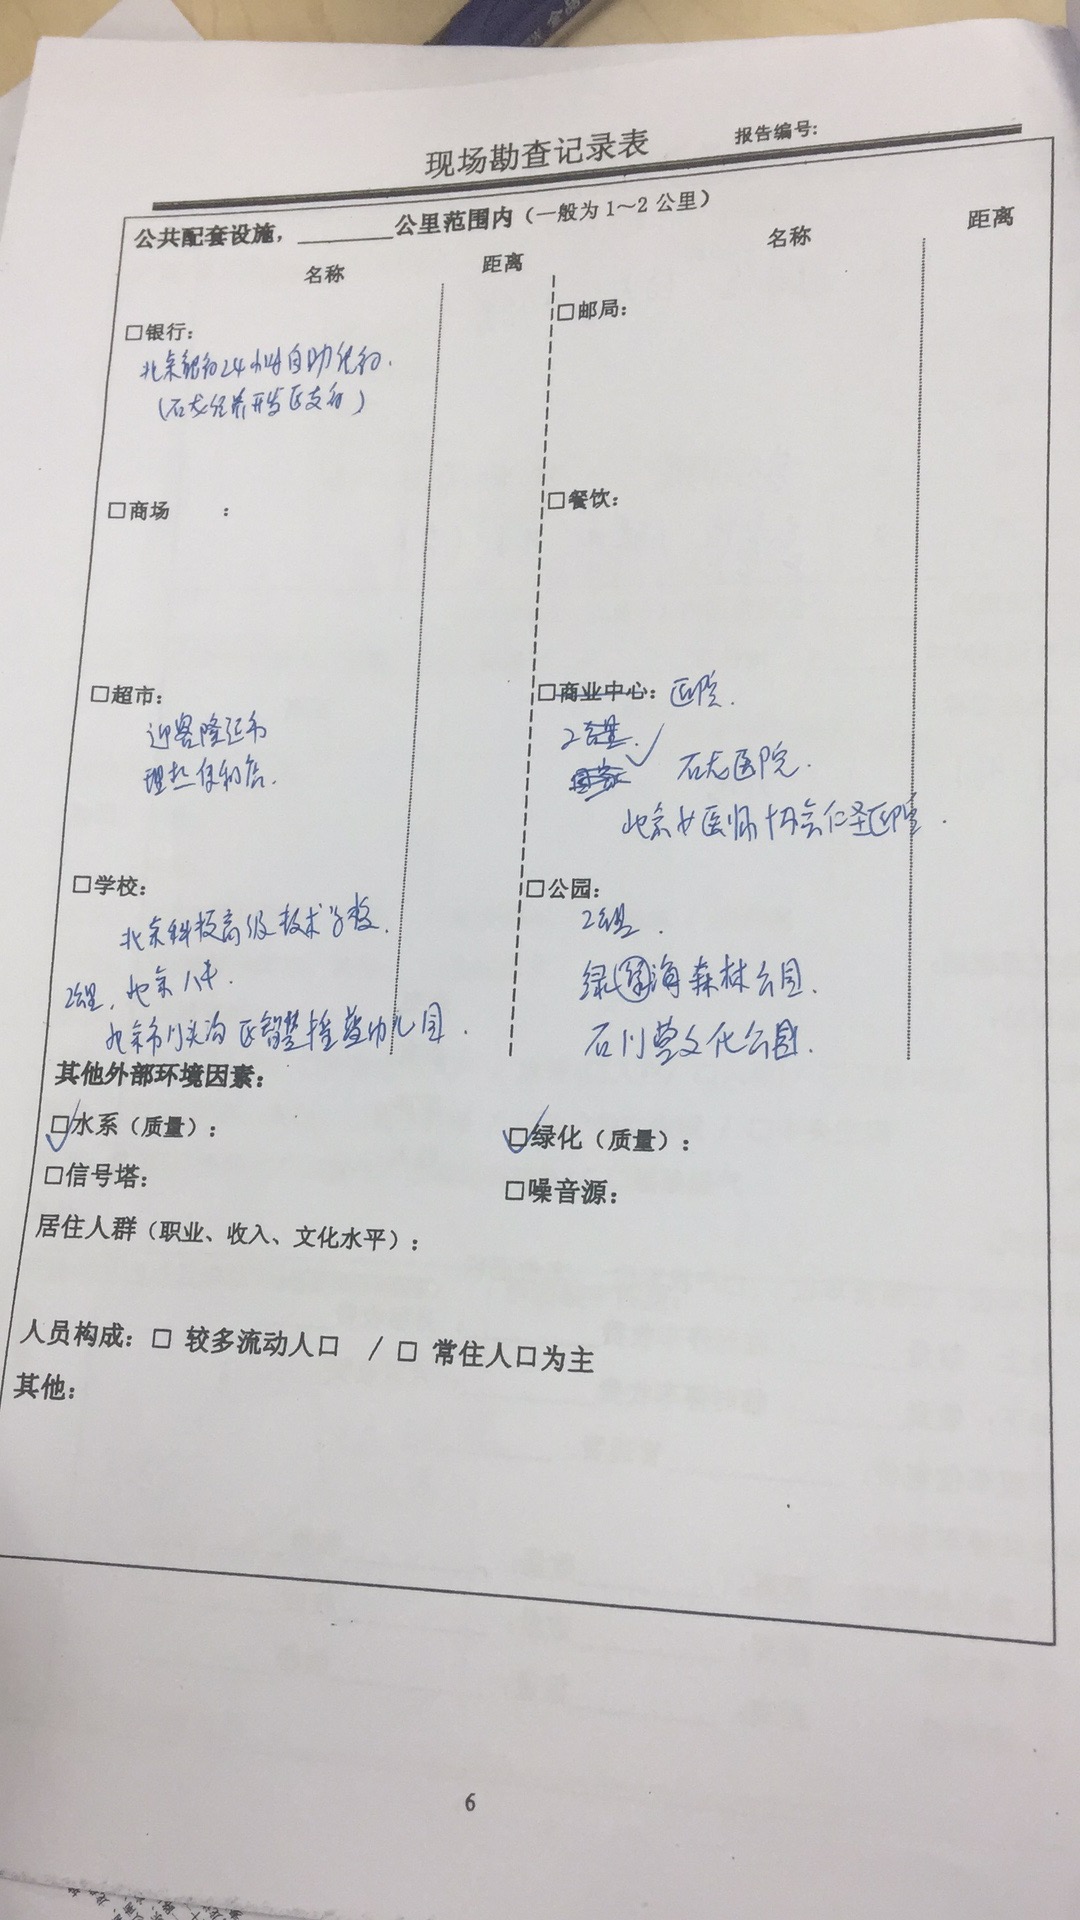 现场勘查记录表
报告编号:
公共配套设施，________公里范围内（一般为1～2公里）
名称 距离 名称 距离
□银行: □邮局:
北京银行24小时自助银行.
(石龙经济开发区支行)
□商场 : □餐饮:
□超市: □商业中心: 医院.
迎客隆超市
2公里.
石龙医院.
北京女医师协会仁圣医院.
□学校: □公园:
北京科技高级技术学校.
2公里, 北京八中.
北京市门头沟区智慧摇篮幼儿园.
2公里.
绿海森林公园.
石门营文化公园.
其他外部环境因素:
□水系（质量）: □绿化（质量）:
□信号塔: □噪音源:
居住人群（职业、收入、文化水平）:
人员构成: □ 较多流动人口 / □ 常住人口为主
其他:
6